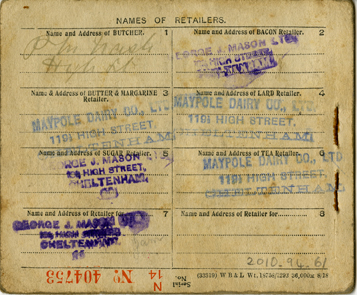 NAMES OF RETAILERS.
Name and Address of BUTCHER. 1
P. M. Nash
High St
Name and Address of BACON Retailer. 2
GEORGE J. MASON LTD
HIGH STREET,
Name & Address of BUTTER & MARGARINE Retailer. 3
MAYPOLE DAIRY CO., LTD
119, HIGH STREET,
CHELTENHAM
Name and Address of LARD Retailer. 4
MAYPOLE DAIRY CO., LTD.
119, HIGH STREET,
CHELTENHAM
Name and Address of SUGAR Retailer. 5
ORGE J. MASON
HIGH STREET,
CHELTENHAM,
Name and Address of TEA Retailer. 6
MAYPOLE DAIRY CO., LTD
119, HIGH STREET,
CHELTENHAM
Name and Address of Retailer for 7
GEORGE J. MASON LTD
HIGH STREET,
CHELTENHAM
Jam
Name and Address of Retailer for 8
2010.94.61
Serial No.
N 14
No 404753